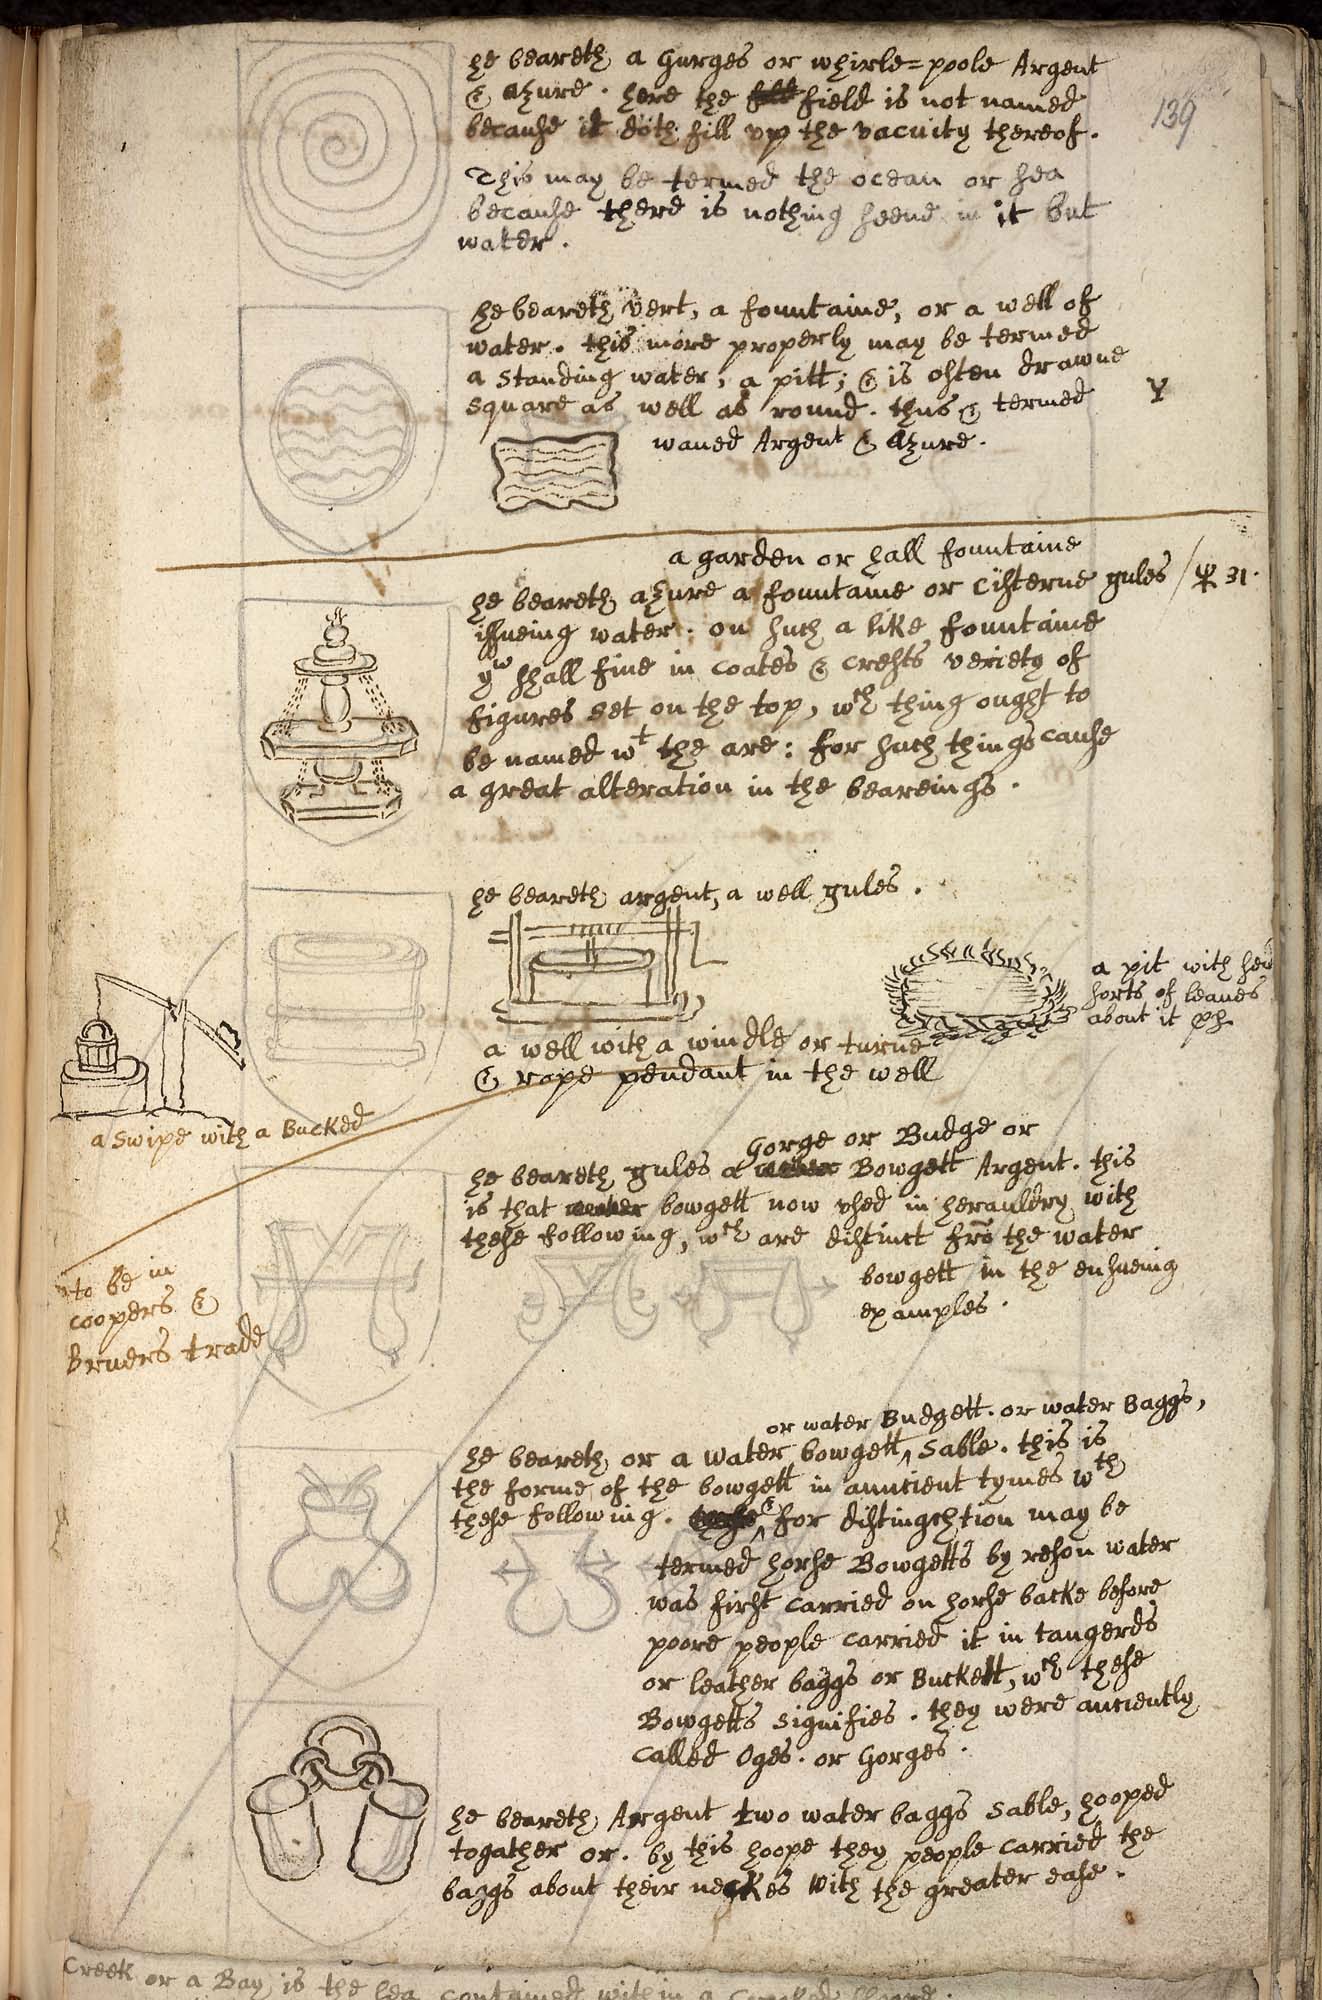 139
he beareth a Gurges or whirle=poole Argent
& Azure. here the field is not named
because it doth fill vp the vacuity thereof.
This may be termed the ocean or sea
because there is nothing seene in it but
water.
he beareth vert, a fountaine, or a well of
water. this more properly may be termed
a standing water, a pitt; & is often drawne
square as well as round. thus & termed
waued Argent & Azure.
a garden or hall fountaine
he beareth azure a fountaine or Cisterne gules / 31.
issueing water. on such a like fountaine
yw shall fine in coates & crests veriety of
figures set on the top, wch thing ought to
be named wt the are: for such things cause
a great alteration in the beareings.
he beareth argent, a well gules.
a pit with
sorts of leaues
about it
a well with a windle or turne
& rope pendant in the well
a swipe with a Bucked
Gorge or Budge or
he beareth gules a water Bowgett Argent. this
is that water bowgett now vsed in herauldry with
these following, wch are distinct frõ the water
bowgett in the ensueing
examples.
to be in
coopers &
Bruers trade
or water Budgett. or water Baggs,
he beareth or a water bowgett ^ sable. this is
the forme of the bowgett in anncient tymes wth
these following. & ^ for distingshtion may be
termed horse Bowgetts by reson water
was first carried on horse backe before
poore people carried it in tangerds
or leather baggs or Buckett, wch these
Bowgetts signifies. they were anciently
called Oges. or Gorges.
he beareth Argent two water baggs sable, hooped
togather or. by this hoope they people carried the
baggs about their neckes with the greater ease.
Creek or a Bay is the sea contained within a Crooked shoare.